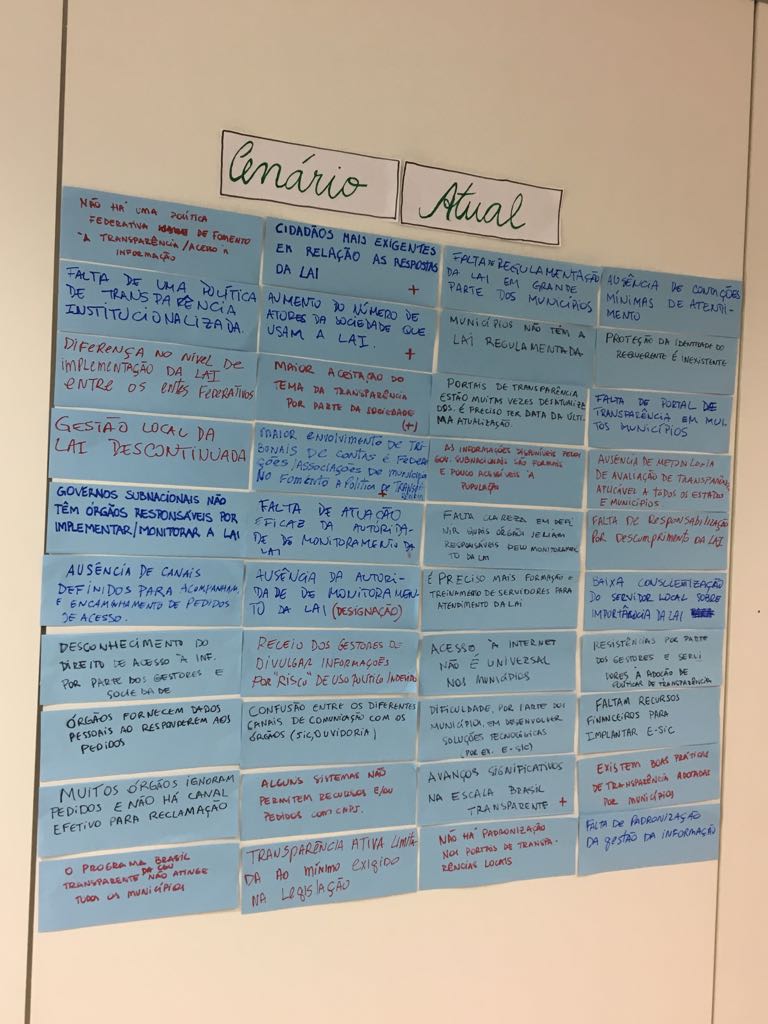 Cenário Atual
NÃO HÁ UMA POLÍTICA
FEDERATIVA DE FOMENTO
À TRANSPARÊNCIA/ACESSO À
INFORMAÇÃO
FALTA DE UMA POLÍTICA
DE TRANSPARÊNCIA
INSTITUCIONALIZADA.
DIFERENÇA NO NÍVEL DE
IMPLEMENTAÇÃO DA LAI
ENTRE OS ENTES FEDERATIVOS
GESTÃO LOCAL DA
LAI DESCONTINUADA
GOVERNOS SUBNACIONAIS NÃO
TÊM ÓRGÃOS RESPONSÁVEIS POR
IMPLEMENTAR/MONITORAR A LAI
AUSÊNCIA DE CANAIS
DEFINIDOS PARA ACOMPANHAM.
E ENCAMINHAMENTO DE PEDIDOS
DE ACESSO.
DESCONHECIMENTO DO
DIREITO DE ACESSO À INF.
POR PARTE DOS GESTORES E
SOCIEDADE
ÓRGÃOS FORNECEM DADOS
PESSOAIS AO RESPONDEREM AOS
PEDIDOS
MUITOS ÓRGÃOS IGNORAM
PEDIDOS E NÃO HÁ CANAL
EFETIVO PARA RECLAMAÇÃO
O PROGRAMA BRASIL
TRANSPARENTE DA CGU NÃO ATINGE
TODOS OS MUNICÍPIOS
CIDADÃOS MAIS EXIGENTES
EM RELAÇÃO AS RESPOSTAS
DA LAI
+
AUMENTO DO NÚMERO DE
ATORES DA SOCIEDADE QUE
USAM A LAI.
+
MAIOR ACEITAÇÃO DO
TEMA DA TRANSPARÊNCIA
POR PARTE DA SOCIEDADE
(+)
MAIOR ENVOLVIMENTO DE TRI-
BUNAIS DE CONTAS E FEDERA-
ÇÕES/ASSOCIAÇÕES DE MUNICÍPIOS
NO FOMENTO À POLÍTICA DE
+
FALTA DE ATUAÇÃO
EFICAZ DA AUTORIDA-
DE DE MONITORAMENTO DA
LAI
AUSÊNCIA DA AUTORI-
DADE DE MONITORAMEN-
TO DA LAI (DESIGNAÇÃO)
RECEIO DOS GESTORES DE
DIVULGAR INFORMAÇÕES
POR "RISCO" DE USO POLÍTICO/INDEVIDO
CONFUSÃO ENTRE OS DIFERENTES
CANAIS DE COMUNICAÇÃO COM OS
ÓRGÃOS (SIC, OUVIDORIA)
ALGUNS SISTEMAS NÃO
PERMITEM RECURSOS E/OU
PEDIDOS COM CNPJ.
TRANSPARÊNCIA ATIVA LIMITA-
DA AO MÍNIMO EXIGIDO
NA LEGISLAÇÃO
FALTA DE REGULAMENTAÇÃO
DA LAI EM GRANDE
PARTE DOS MUNICÍPIOS
MUNICÍPIOS NÃO TÊM A
LAI REGULAMENTADA
PORTAIS DE TRANSPARÊNCIA
ESTÃO MUITAS VEZES DESATUALIZA-
DOS. É PRECISO TER DATA DA ÚLTI-
MA ATUALIZAÇÃO.
AS INFORMAÇÕES DISPONÍVEIS PELOS
GOV. SUBNACIONAIS SÃO FORMAIS
E POUCO ACESSÍVEIS À
POPULAÇÃO
FALTA CLAREZA EM DEFI-
NIR QUAIS ÓRGÃOS SERIAM
RESPONSÁVEIS PELO MONITORAMEN-
TO DA LAI
É PRECISO MAIS FORMAÇÃO E
TREINAMENTO DE SERVIDORES PARA
ATENDIMENTO DA LAI
ACESSO À INTERNET
NÃO É UNIVERSAL
NOS MUNICÍPIOS
DIFICULDADE, POR PARTE DOS
MUNICÍPIOS, EM DESENVOLVER
SOLUÇÕES TECNOLÓGICAS
(POR EX. E-SIC)
AVANÇOS SIGNIFICATIVOS
NA ESCALA BRASIL
TRANSPARENTE +
NÃO HÁ PADRONIZAÇÃO
NOS PORTAIS DE TRANSPA-
RÊNCIAS LOCAIS
AUSÊNCIA DE CONDIÇÕES
MÍNIMAS DE ATENDI-
MENTO
PROTEÇÃO DA IDENTIDADE DO
REQUERENTE É INEXISTENTE
FALTA DE PORTAL DE
TRANSPARÊNCIA EM MUI-
TOS MUNICÍPIOS
AUSÊNCIA DE METODOLOGIA
DE AVALIAÇÃO DE TRANSPARÊNCIA
APLICÁVEL A TODOS OS ESTADOS
E MUNICÍPIOS
FALTA DE RESPONSABILIZAÇÃO
POR DESCUMPRIMENTO DA LAI
BAIXA CONSCIENTIZAÇÃO
DO SERVIDOR LOCAL SOBRE
IMPORTÂNCIA DA LAI
RESISTÊNCIAS POR PARTE
DOS GESTORES E SERVI-
DORES À ADOÇÃO DE
POLÍTICAS DE TRANSPARÊNCIA
FALTAM RECURSOS
FINANCEIROS PARA
IMPLANTAR E-SIC
EXISTEM BOAS PRÁTICAS
DE TRANSPARÊNCIA ADOTADAS
POR MUNICÍPIOS
FALTA DE PADRONIZAÇÃO
DA GESTÃO DA INFORMAÇÃO